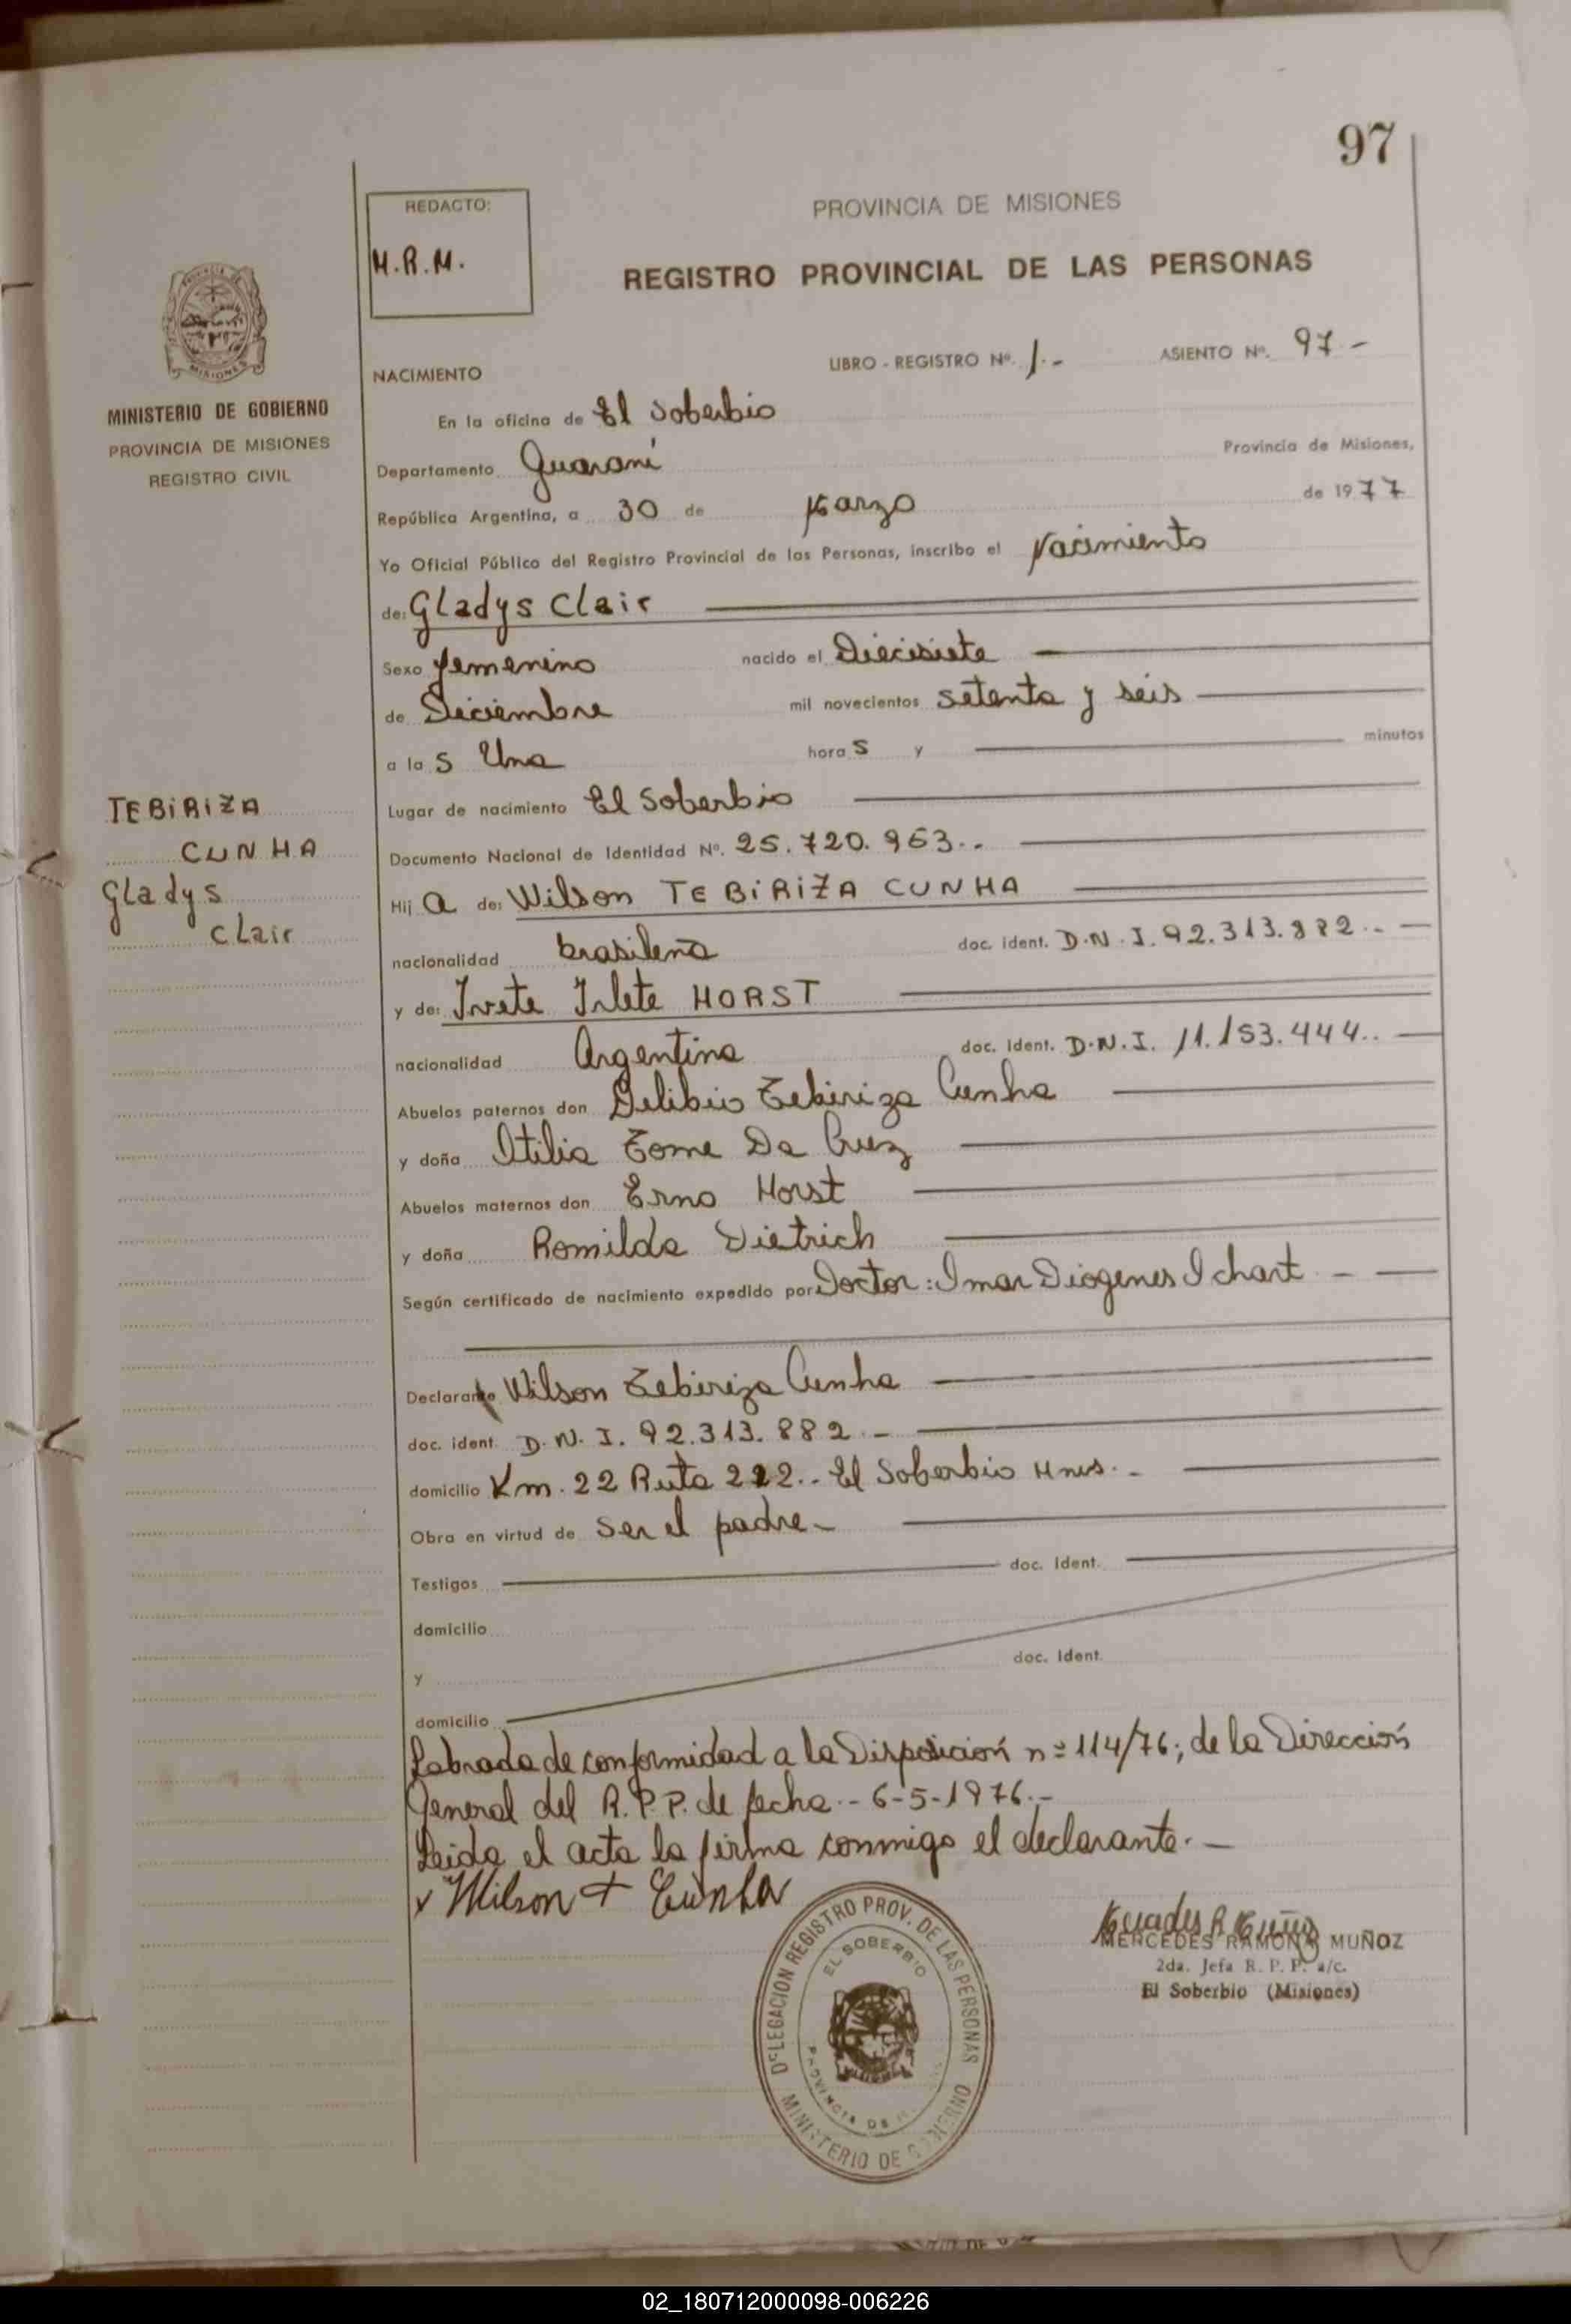 97
REDACTO:
M.R.M.
PROVINCIA DE MISIONES
REGISTRO PROVINCIAL DE LAS PERSONAS
MISIONES
MINISTERIO DE GOBIERNO
PROVINCIA DE MISIONES
REGISTRO CIVIL
NACIMIENTO
LIBRO - REGISTRO Nº. 1.- ASIENTO Nº. 97-
En la oficina de El Soberbio
Departamento Guaraní Provincia de Misiones,
República Argentina, a 30 de Marzo de 1977
Yo Oficial Público del Registro Provincial de las Personas, inscribo el Nacimiento
de: Gladys Clair
Sexo femenino nacido el Diecisiete
de Diciembre mil novecientos setenta y seis
a la s Una hora s y minutos
TEBiRiZA
CUNHA
Gladys
Clair
Lugar de nacimiento El Soberbio
Documento Nacional de Identidad Nº. 25.720.963.-
Hij a de: Wilson TEBiRiZA CUNHA
nacionalidad brasileña doc. ident. D.N.I. 92.313.882.-
y de: Ivete Irlete HORST
nacionalidad Argentina doc. ident. D.N.I. 11.153.444..
Abuelos paternos don Delibio Tebiriza Cunha
y doña Itilia Tome Da Cruz
Abuelos maternos don Erno Horst
y doña Romilda Dietrich
Según certificado de nacimiento expedido por Doctor: Imar Diogenes Ichart -
Declarante Wilson Tebiriza Cunha
doc. ident. D.N.I. 92.313.882.-
domicilio Km. 22 Ruta 222.- El Soberbio Mnes.-
Obra en virtud de ser el padre-
Testigos doc. ident.
domicilio
y doc. ident.
domicilio
Labrada de conformidad a la Disposicion nº 114/76; de la Dirección
General del R.P.P. de fecha.- 6-5-1976.-
Leida el acta la firma conmigo el declarante.-
x Wilson T Cunha
MERCEDES RAMONA MUÑOZ
2da. Jefa R. P. P. a/c.
El Soberbio (Misiones)
DELEGACION REGISTRO PROV. DE LAS PERSONAS
EL SOBERBIO
PROVINCIA DE
MINISTERIO DE GOBIERNO
02_180712000098-006226